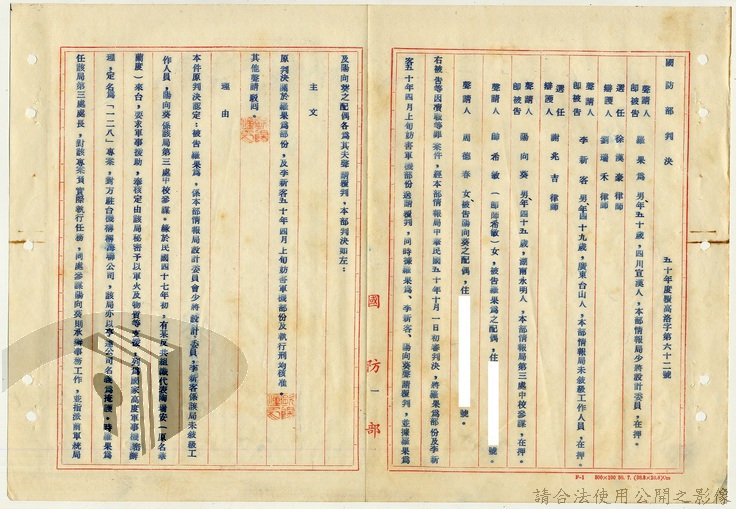 國防部判決　五十年度覆高洛字第六十二號
聲請人即被告　羅果為　男年五十歲，四川宣漢人，本部情報局少將設計委員，在押。
選任辯護人　徐漢豪律師
劉瑞禾律師
聲請人即被告　李新客　男年四十九歲，廣東台山人，本部情報局未敘級工作人員，在押。
選任辯護人　謝兆吉律師
聲請人即被告　陽向葵　男年四十五歲，湖南永明人，本部情報局第三處中校參謀，在押。
聲請人　帥希敏（即帥希敏）女，被告羅果為之配偶，住　號。
聲請人　周德春　女，被告陽向葵之配偶，住　號。
右被告等因瀆職等罪案件，經本部情報局中華民國五十年十月一日初審判決，將羅果為部份及李新
客五十年四月上旬訪害軍機部份送請覆判，同時據羅果為、李新客、陽向葵聲請覆判，並據羅果為
及陽向葵之配偶各為其夫聲請覆判，本部判決如左：
主文
原判決關於羅果為部份，及李新客五十年四月上旬訪害軍機部份及執行刑均核准。
其他聲請駁回。
理由
本件原判決認定：被告羅果為，係本部情報局設計委員會少將設計委員，李新客係該局未敘級工
作人員，陽向葵係該局第三處中校參謀。緣於民國四十七年初，有某反共組織代表陶瑞安（原名章
蘭度）來台，要求軍事援助，奉核定由該局秘密予以軍火及物資等支援，列為國家高度軍事機密辦
理，定名為「一二八」專案，對方駐台機構稱海聯公司，該局亦以李達公司名義為掩護。時羅果為
任該局第三處處長，對該專案負實際執行任務，同處參謀陽向葵則承辦事務工作，並指派前軍統局
國防部
F-1 500×100 50. 7.
請合法使用公開之影像